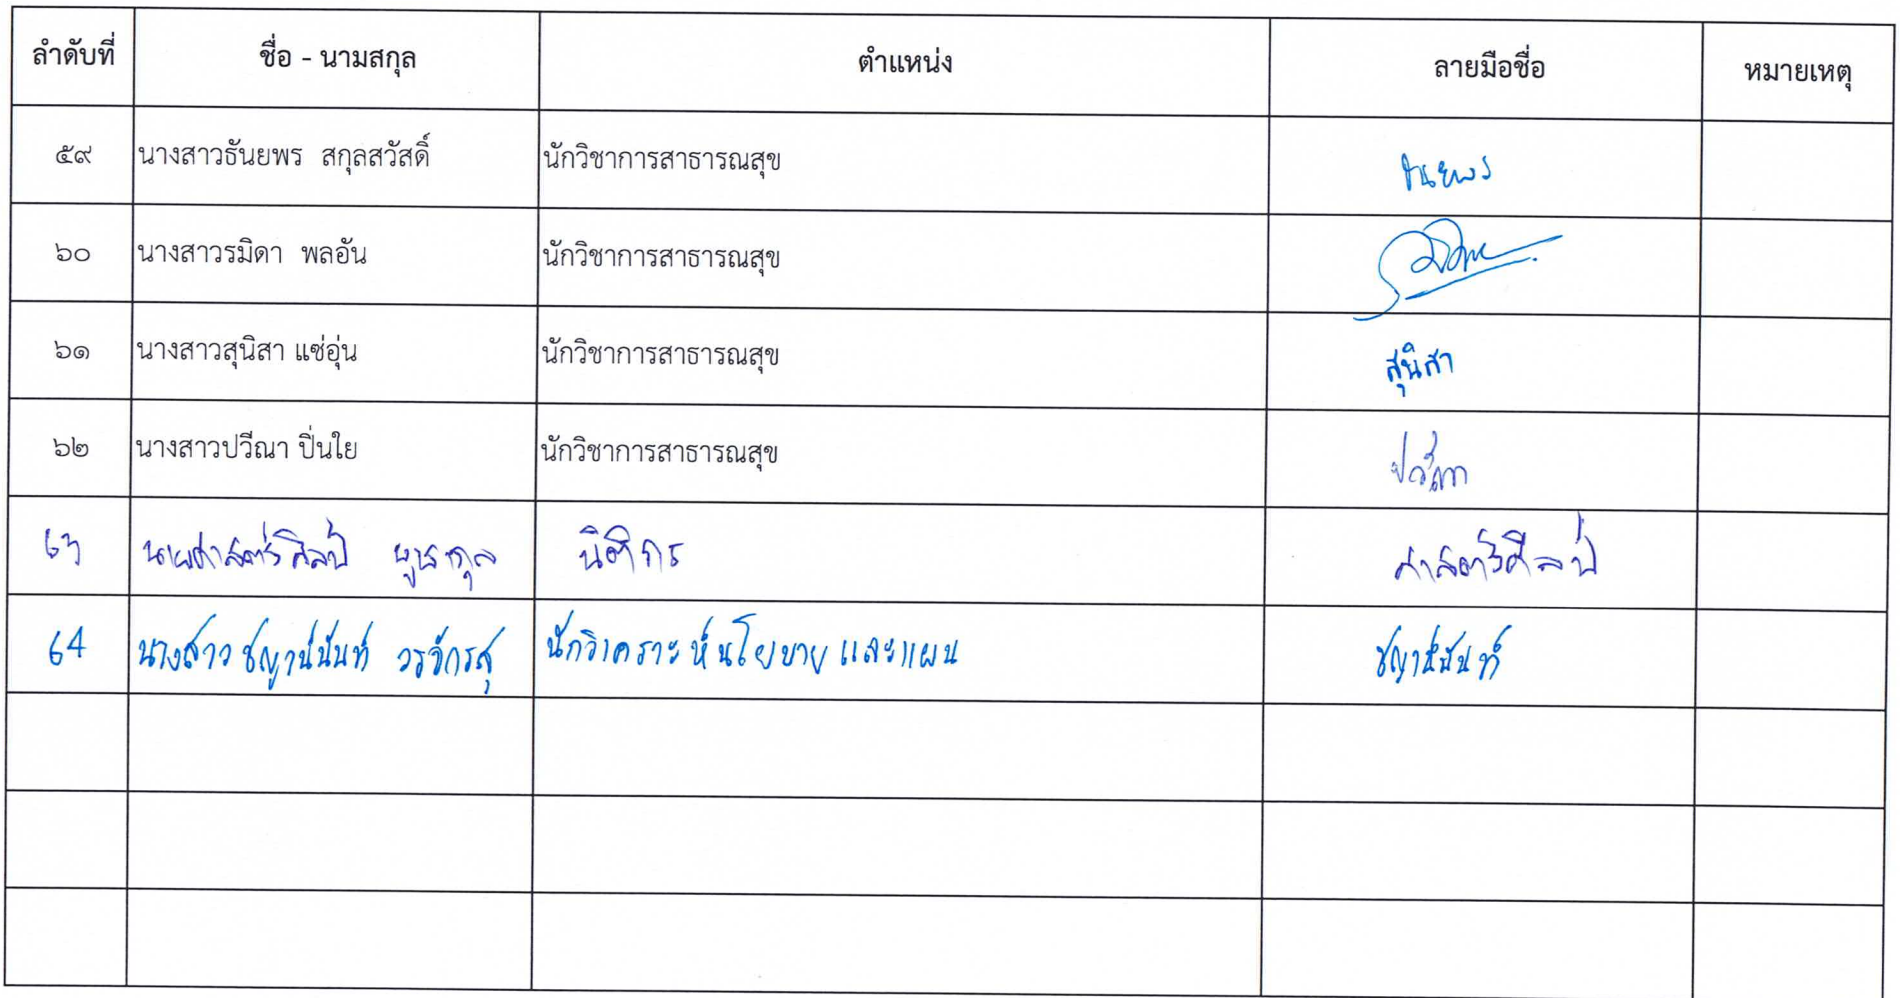 ลำดับที่ ชื่อ - นามสกุล ตำแหน่ง ลายมือชื่อ หมายเหตุ
๕๙ นางสาวธันยพร สกุลสวัสดิ์ นักวิชาการสาธารณสุข ธันยพร
๖๐ นางสาวรมิดา พลอัน นักวิชาการสาธารณสุข
๖๑ นางสาวสุนิสา แซ่อุ่น นักวิชาการสาธารณสุข สุนิสา
๖๒ นางสาวปวีณา ปิ่นใย นักวิชาการสาธารณสุข ปวีณา
63 นายศาสตร์ศิลป์ นิติกร ศาสตร์ศิลป์
64 นางสาว ชญานันันท์ วรจักรสุ นักวิเคราะห์นโยบายและแผน ชญานันันท์